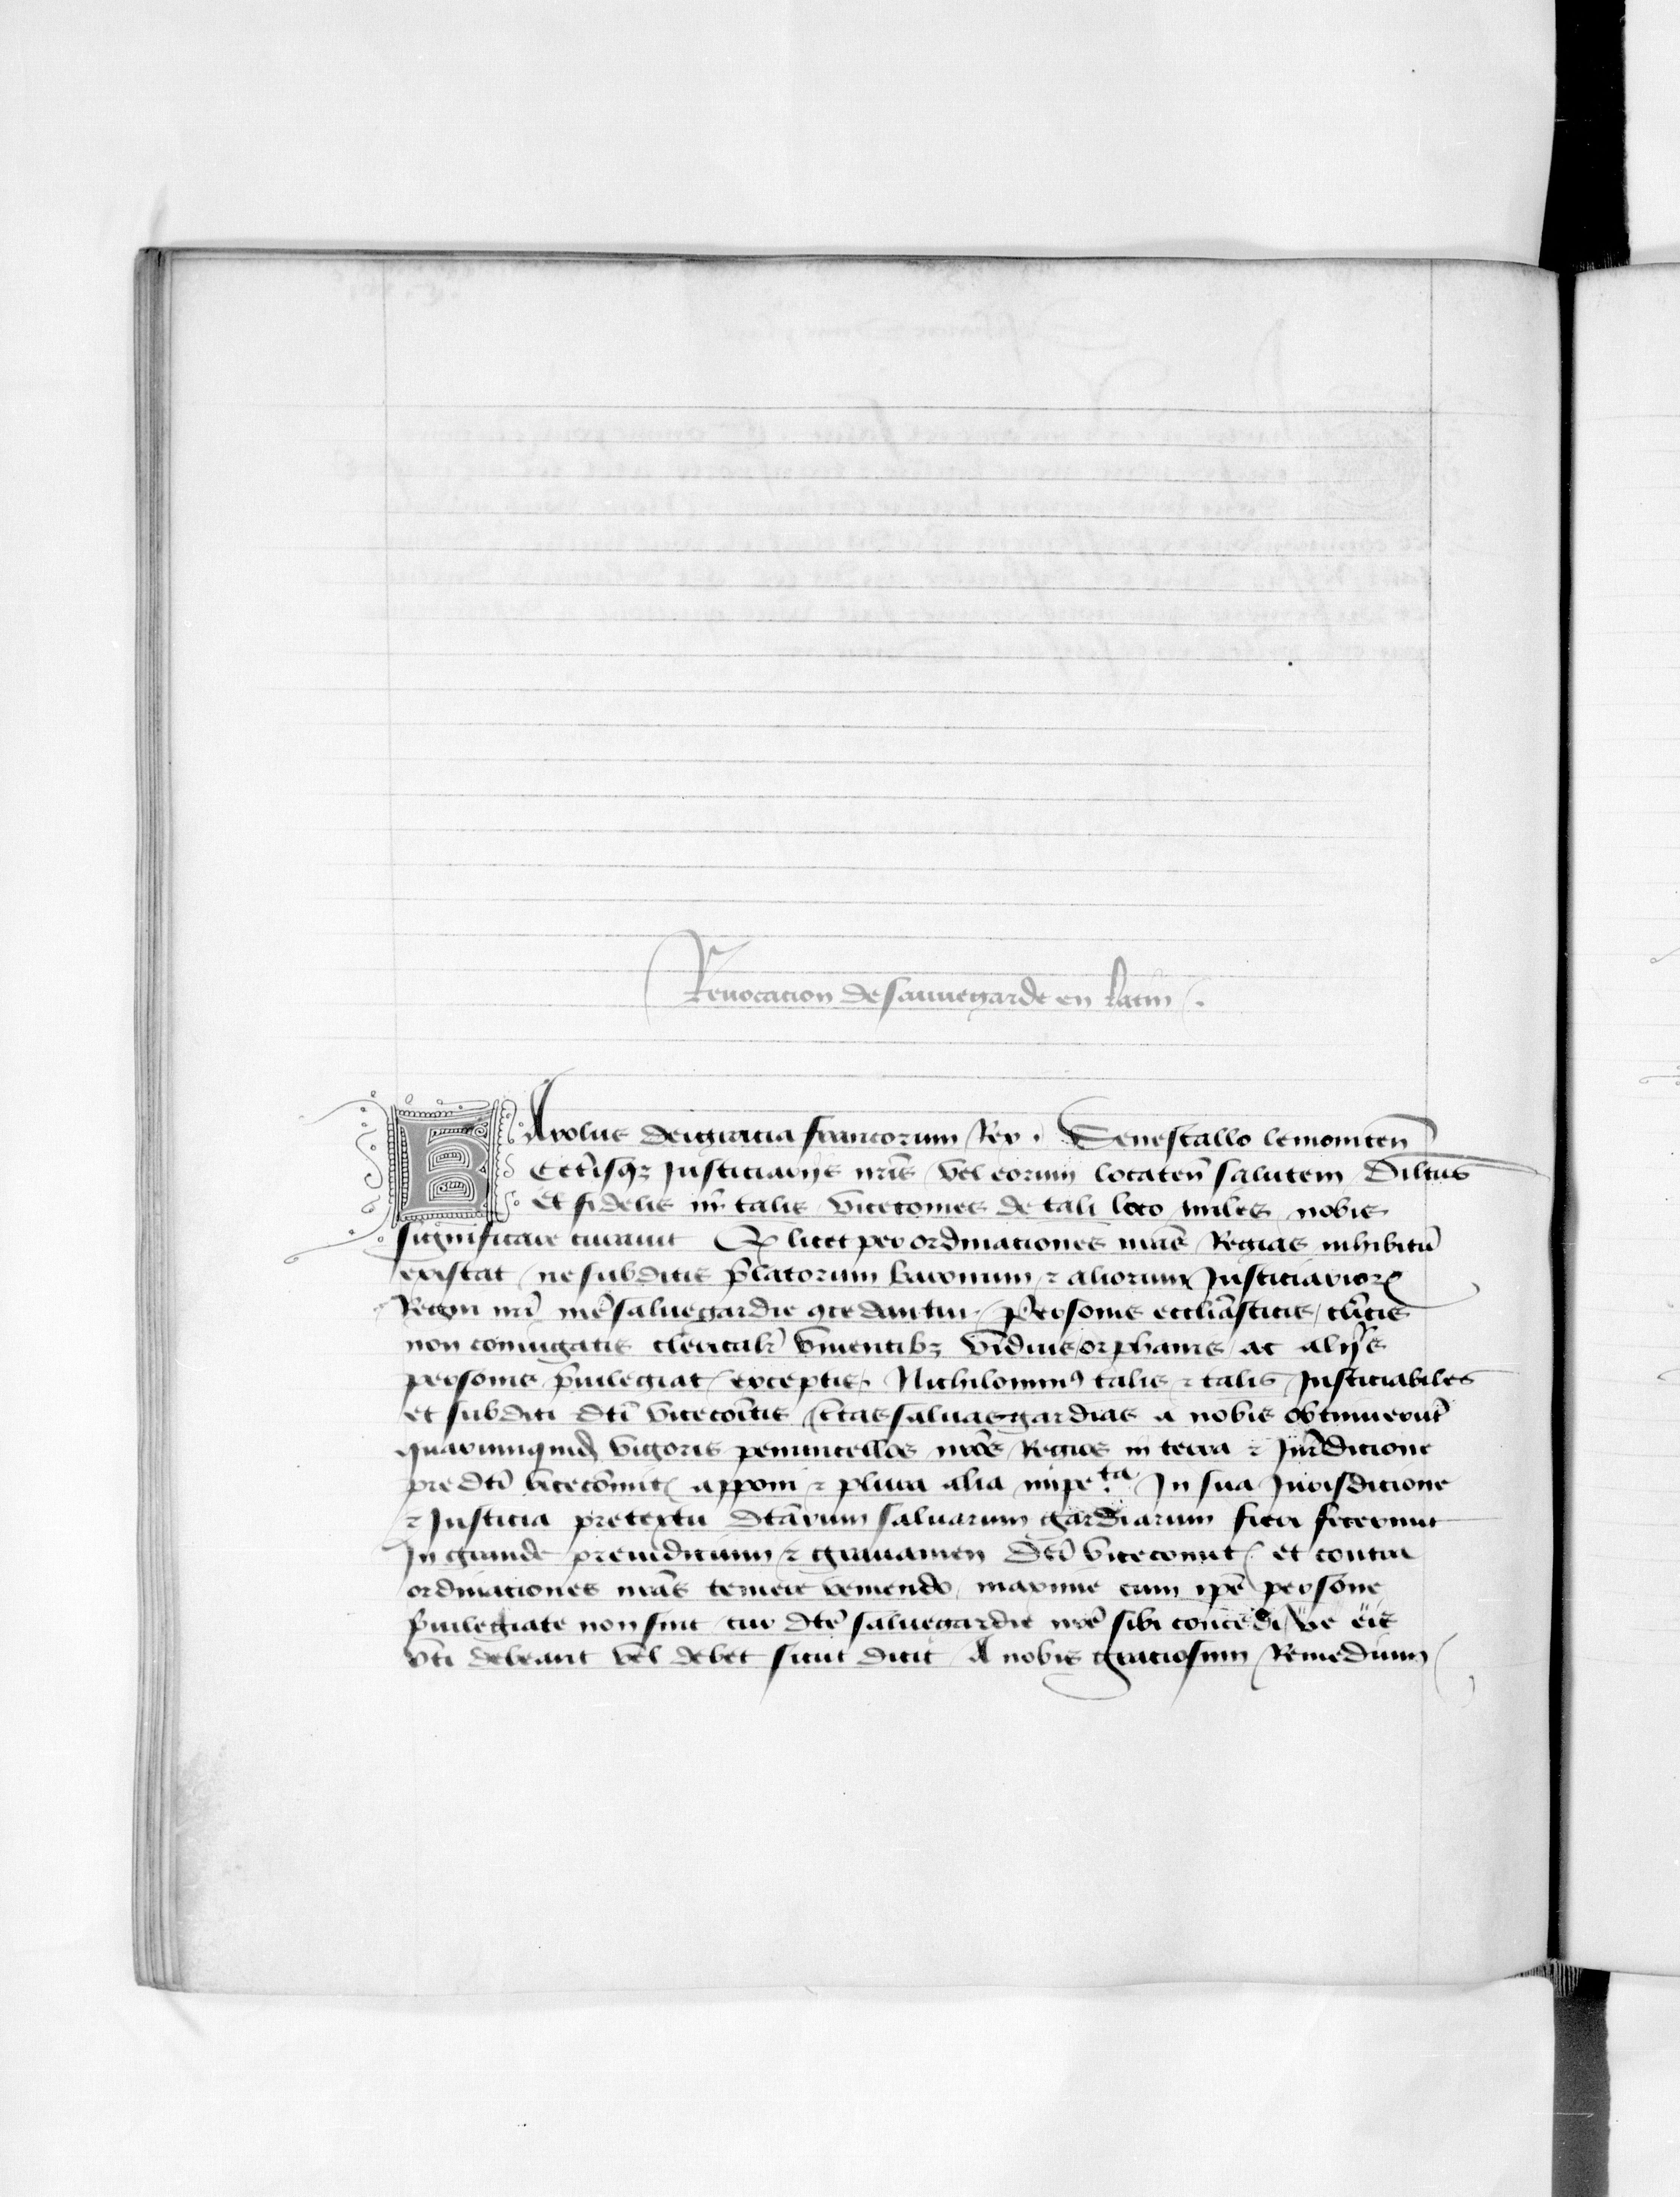 Reuocacion de sauuegarde en latin
KArolus dei gracia francorum Rex. Senescallo lemouicen̄
Cet̄isq3 Justiciarijs nr̄is vel eorum locaten̄ salutem Dilc̄us
Et fidelis nr̄ talis vicecomes de tali loco miles nobis
significare curauit Q licet per ordinaciones nr̄as Regias inhibitū
existat ne subditis p̄latorum baronum ⁊ aliorum Justiciarior
Regni nr̄i nr̄e saluegardie ꝯcedantur Personis eccliāsticis cl̄icis
non coniugatis clericalr̄ viuentib3 viduis orphanis ac alijs
personis p̄uilegiat exceptis. Nichilominꝰ talis ⁊ talis Justiciabiles
et subditi dc̄i vicecoītis c̄tas saluasgardias a nobis obtinuerūt
quarumquid vigoris penuncellos nr̄os Regios in terra ⁊ Jur̄dicione
predc̄i vicecōmit apponi ⁊ plura alia impetᵗᵃ In sua Jurisdicione
⁊ Justicia pretextu dc̄arum saluarum gardiarum fieri fecerunt
In grande preiudicium ⁊ grauamen dc̄i vicecomit et contra
ordinaciones nr̄as temere veniendo maxime cum ip̄e persone
p̄uilegiate non sint cur dc̄e saluegardie nr̄e sibi concedi ve eis
vti debeant vel debet sicut dicit A nobis graciosum Remedium